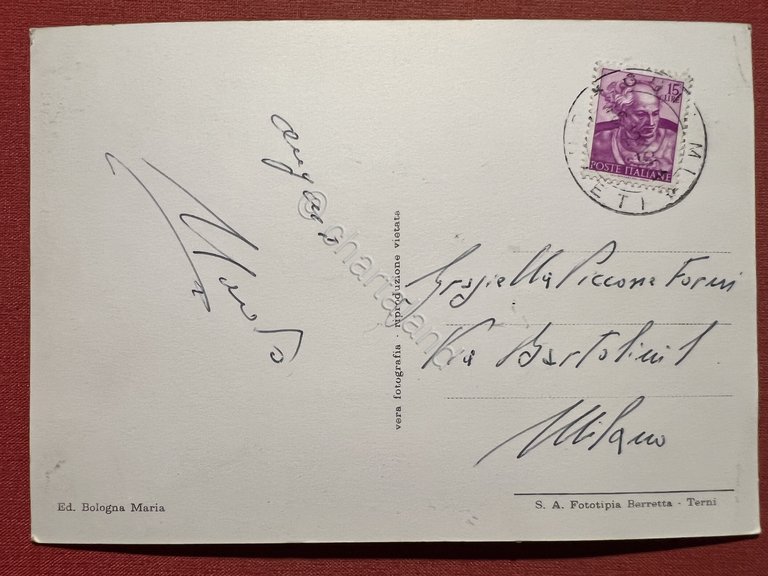 auguri
15
LIRE
POSTE ITALIANE
RIETI
@ chartaland
vera fotografia - riproduzione vietata
Graziella Piccone Forni
Via Bartolini 1
Milano
Ed. Bologna Maria
S. A. Fototipia Berretta - Terni